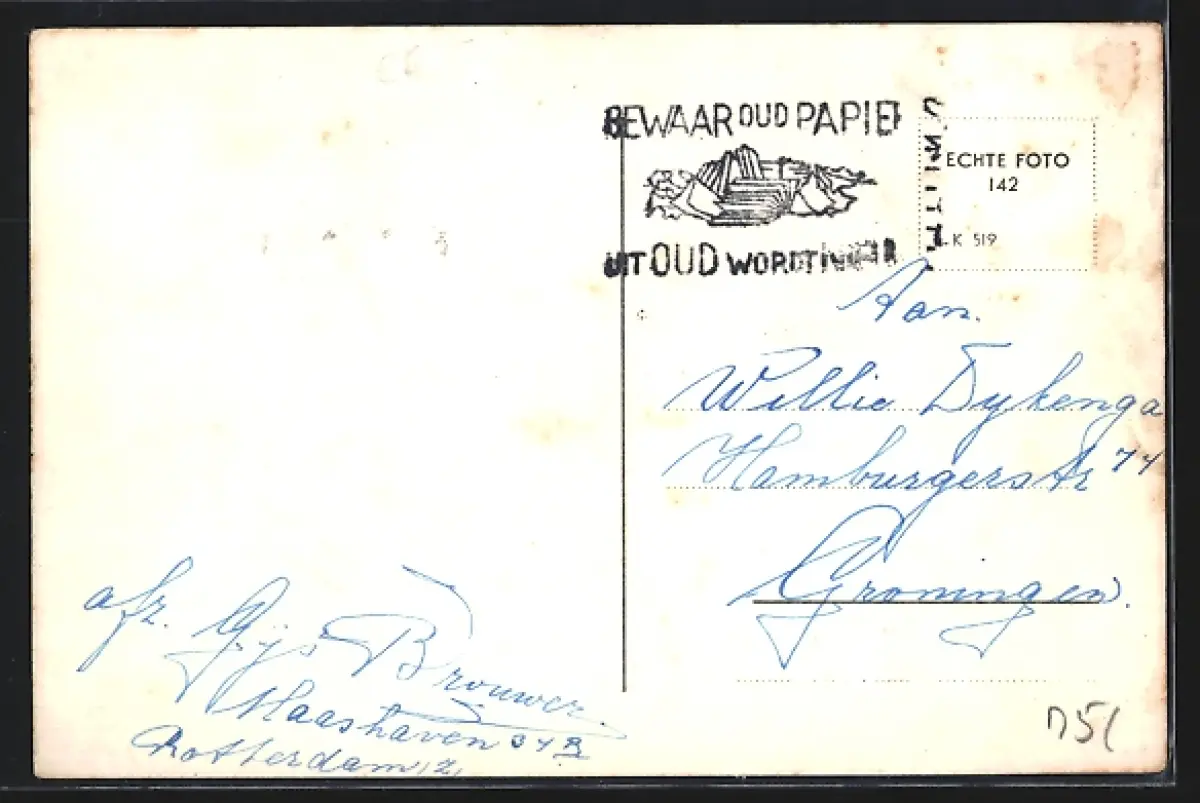 BEWAAR OUD PAPIER
UIT OUD WORDT
ECHTE FOTO
142
K 519
Aan.
Willie Dykenga
Hamburgerstr 74
Groningen.
afz. Gijs Brouwer.
Maashaven
Rotterdam Z